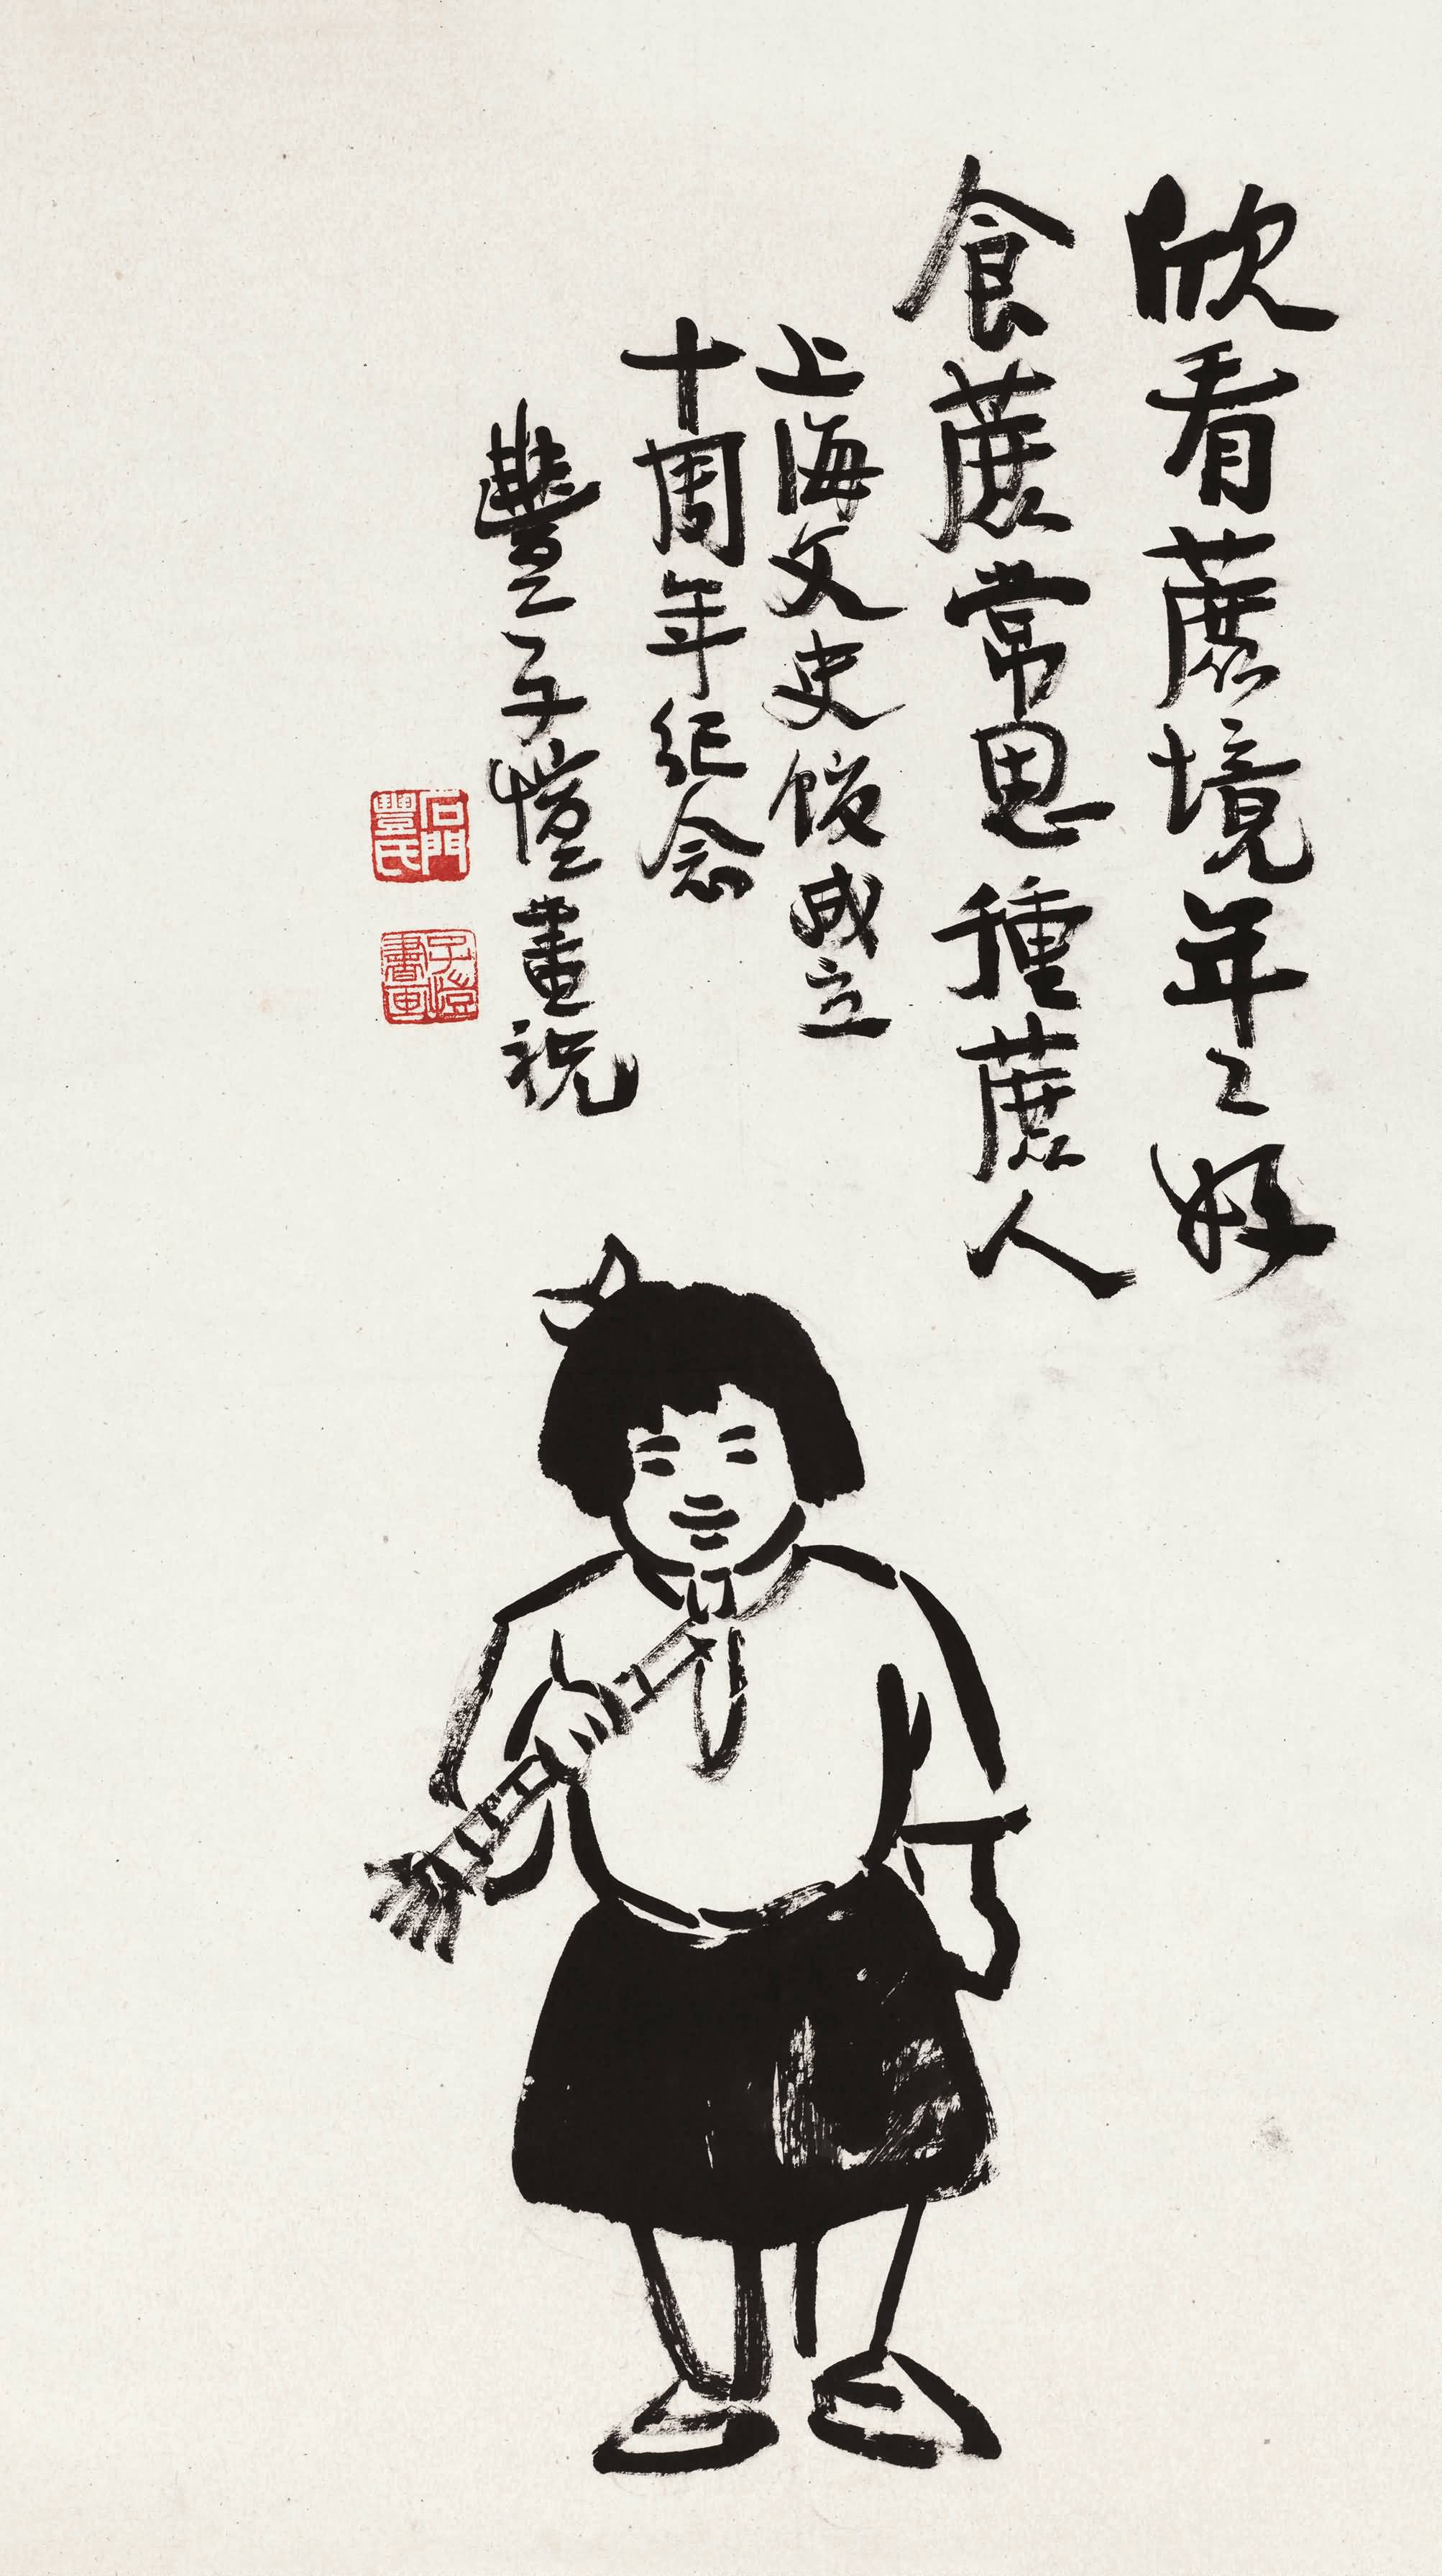 欣看蔗境年〻好
食蔗常思種蔗人
上海文史館成立
十周年纪念
豐子愷畫祝
石門豐氏
子愷書画